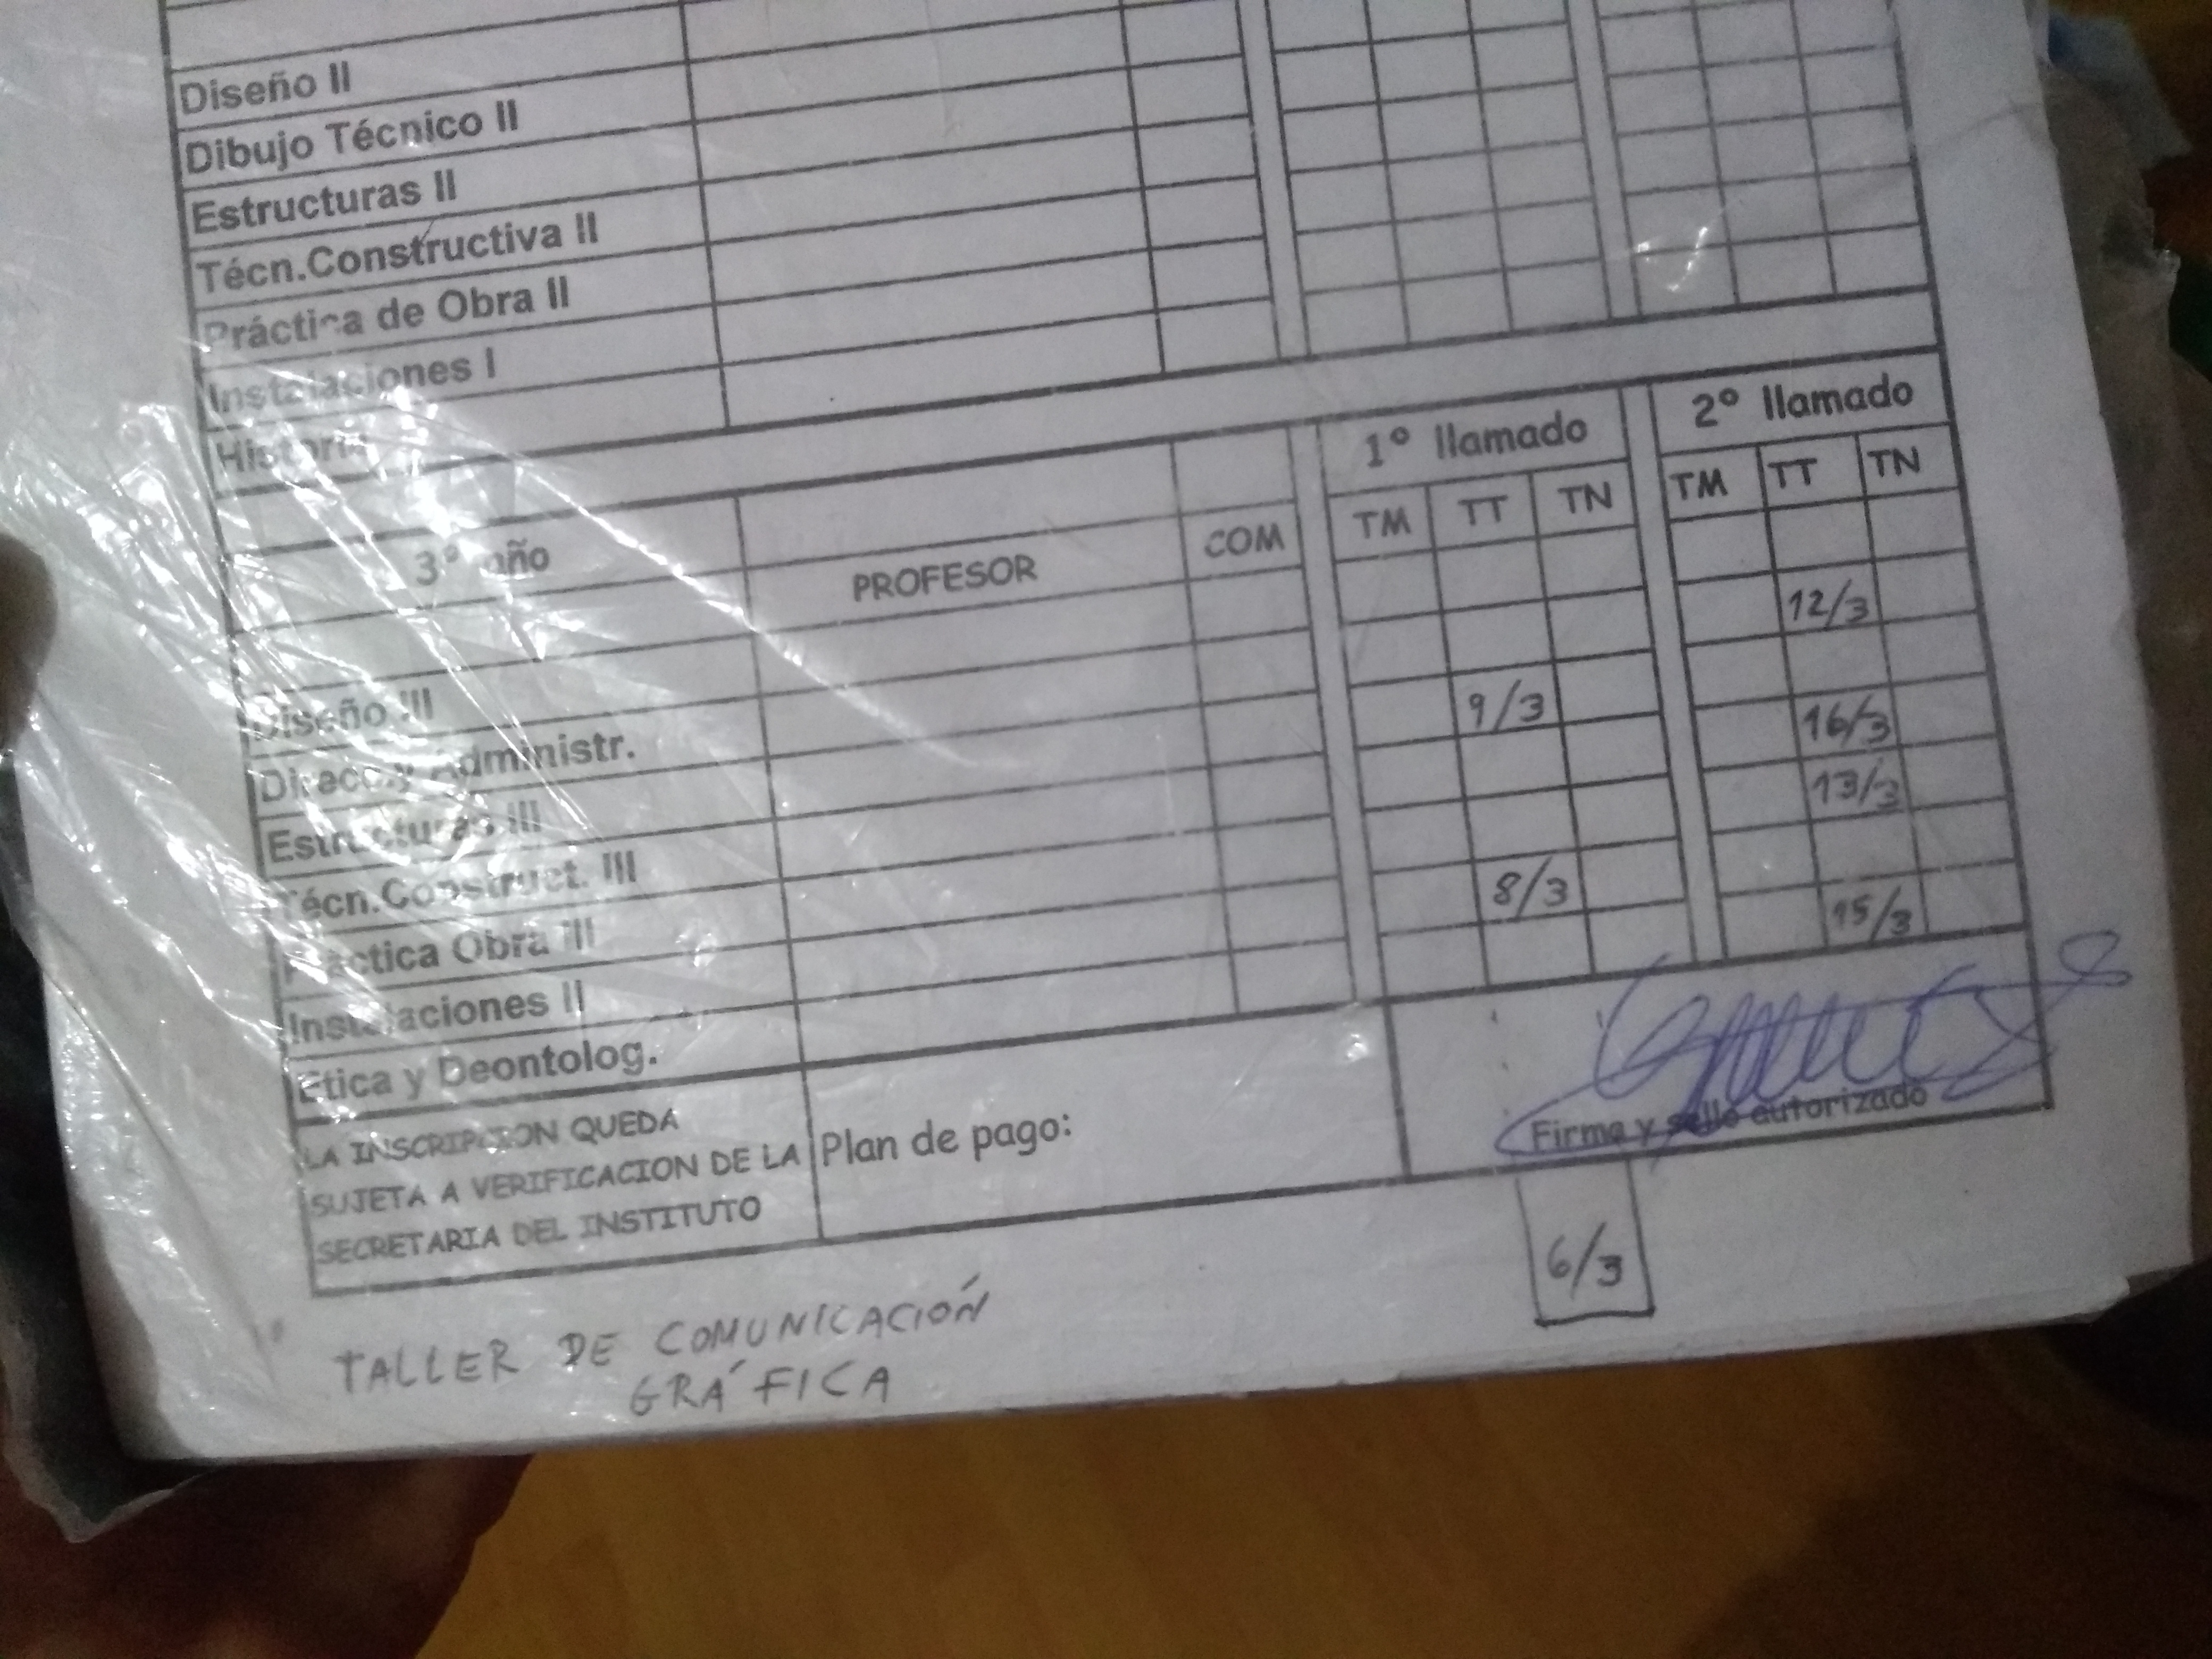 Diseño II
Dibujo Técnico II
Estructuras II
Técn.Constructiva II
Práctica de Obra II
Instalaciones I
Historia
1º llamado 2º llamado
3º año PROFESOR COM TM TT TN TM TT TN
Diseño III
Direcc.y Administr. 12/3
Estructuras III
Técn.Construct. III 9/3 16/3
Práctica Obra III 13/3
Instalaciones II
Etica y Deontolog. 8/3 15/3
LA INSCRIPCION QUEDA
SUJETA A VERIFICACION DE LA
SECRETARIA DEL INSTITUTO
Plan de pago:
Firma y sello autorizado
TALLER DE COMUNICACIÓN
GRÁFICA
6/3